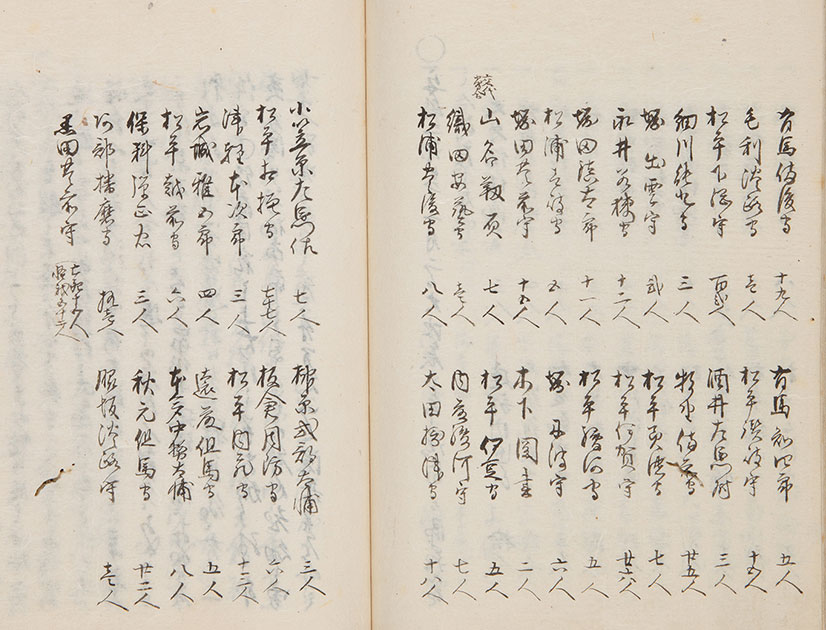 有馬備後守 十九人 有馬 四郎 五人
毛利淡路守 壱人 松平讃岐守 十五人
松平下総守 百弐人 酒井左 三人
細川能登守 三人 牧野備前守 廿五人
堀出雲守 弐人 松平美濃守 七人
永井若狭守 十二人 松平伊賀守 廿六人
堀田 太郎 十一人 松平駿河守 五人
松浦壱岐守 五人 堀丹波守 六人
堀田豊前守 十五人 木下図書 二人
山名靱負 七人 松平伊豆守 五人
織田安芸守 壱人 内藤駿河守 七人
松浦豊後守 八人 太田摂津守 十八人
小笠原左 七人 榊原式部大輔 三人
松平相摸守 七人 板倉周防守 六人
津軽本次郎 三人 松平内 守 十三人
岩城雅五郎 四人 遠藤但馬守 五人
松平越前守 六人 本多中務大輔 八人
保科弾正忠 三人 秋元但馬守 廿二人
阿部播磨守 拾壱人 脇坂淡路守 壱人
黒田豊前守